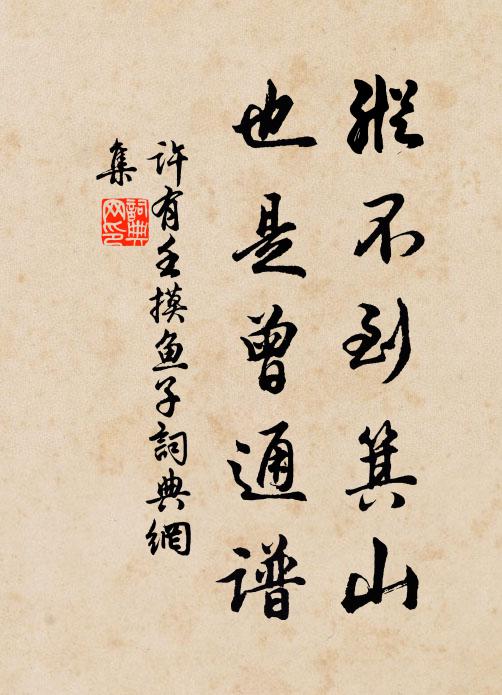 纵不到箕山
也是曾通谱
许有壬摸鱼子詞典網
集
詞典
网印